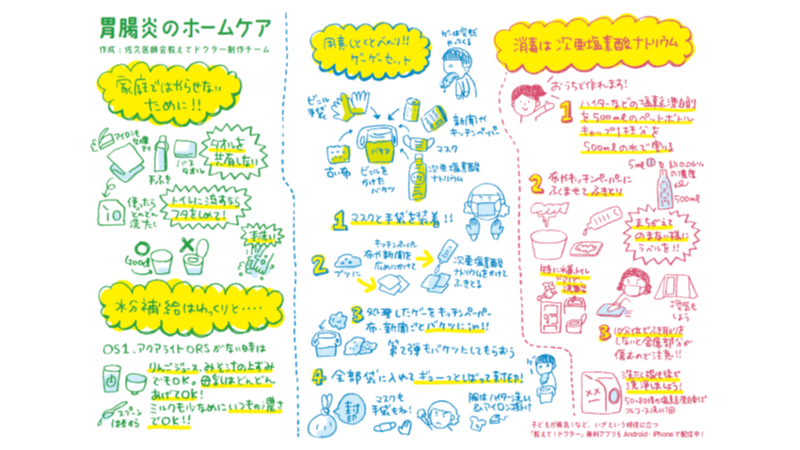 胃腸炎のホームケア
作成：佐久医師会教えてドクター制作チーム
家庭ではやらせない
ために!!
アイロンも
有効
タオルを
共有しない
手ふき
バス
タオル
使ったら
どんどん
洗たく
トイレに流すなら
フタをしめて!
手洗い
Good
水分補給はゆっくりと・・・・
OS1、アクアライトORSがない時は
りんごジュース、みそ汁の上ずみ
でもOK。母乳はどんどん
あげてOK!
ミルクも少なめにいつもの濃さ
でOK!!
スプーン
1杯から
用意しとくとべんり!!
ゲーゲーセット
ゲーは突然
やってくる
ビニル
手袋
新聞や
キッチンペーパー
マスク
バケツ
古い布
ビニルを
かけた
バケツ
次亜塩素酸
ナトリウム
1 マスクと手袋を装着!!
2
キッチンペーパー
布や新聞を
広めにかけて
次亜塩素酸
ナトリウムをかけて
ふきとる
3 処理したゲーをキッチンペーパー
布・新聞ごとバケツにinn!!
第2弾もバケツにしてもらおう
4 全部袋に入れてギューっとしばって封印!
封
マスクも
手袋もね!
服はハイター洗い
&アイロン掛け
消毒は次亜塩素酸ナトリウム
おうちで作れます!
1 ハイターなどの塩素系漂白剤
を500mlのペットボトル
キャップ1杯分を
500mlの水で割る
5ml
の濃度
500ml
2 布やキッチンペーパーに
ふくませてふきとり
まちがえて
のまない様に
ラベルを!!
特に水暴トイレ
換気も
しよう
3 10分位でふき取りを
しないと金属部分が
傷むので注意!!
洗たく機も後で
洗浄しましょう!
子どもが病気！など、いざという時役に立つ
「教えて！ドクター」無料アプリもAndroid・iPhoneで配信中！